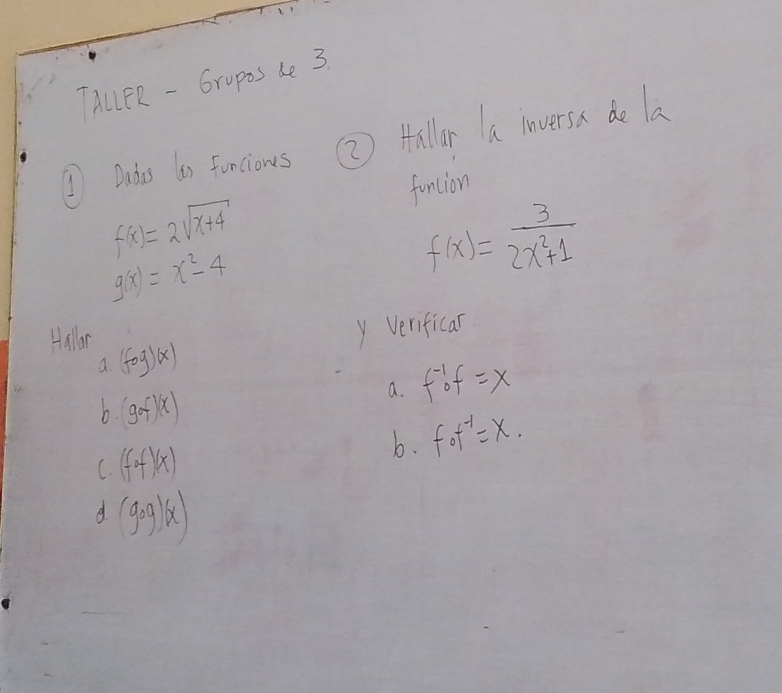 TALLER - Grupos de 3.
① Dadas las funciones
f(x) = 2√x+4
g(x) = x² - 4
Hallar
a. (fog)(x)
b. (gof)(x)
c. (fof)(x)
d. (gog)(x)
② Hallar la inversa de la
función
f(x) = 3/(2x²+1)
y Verificar
a. f⁻¹of = x
b. fof⁻¹ = x.